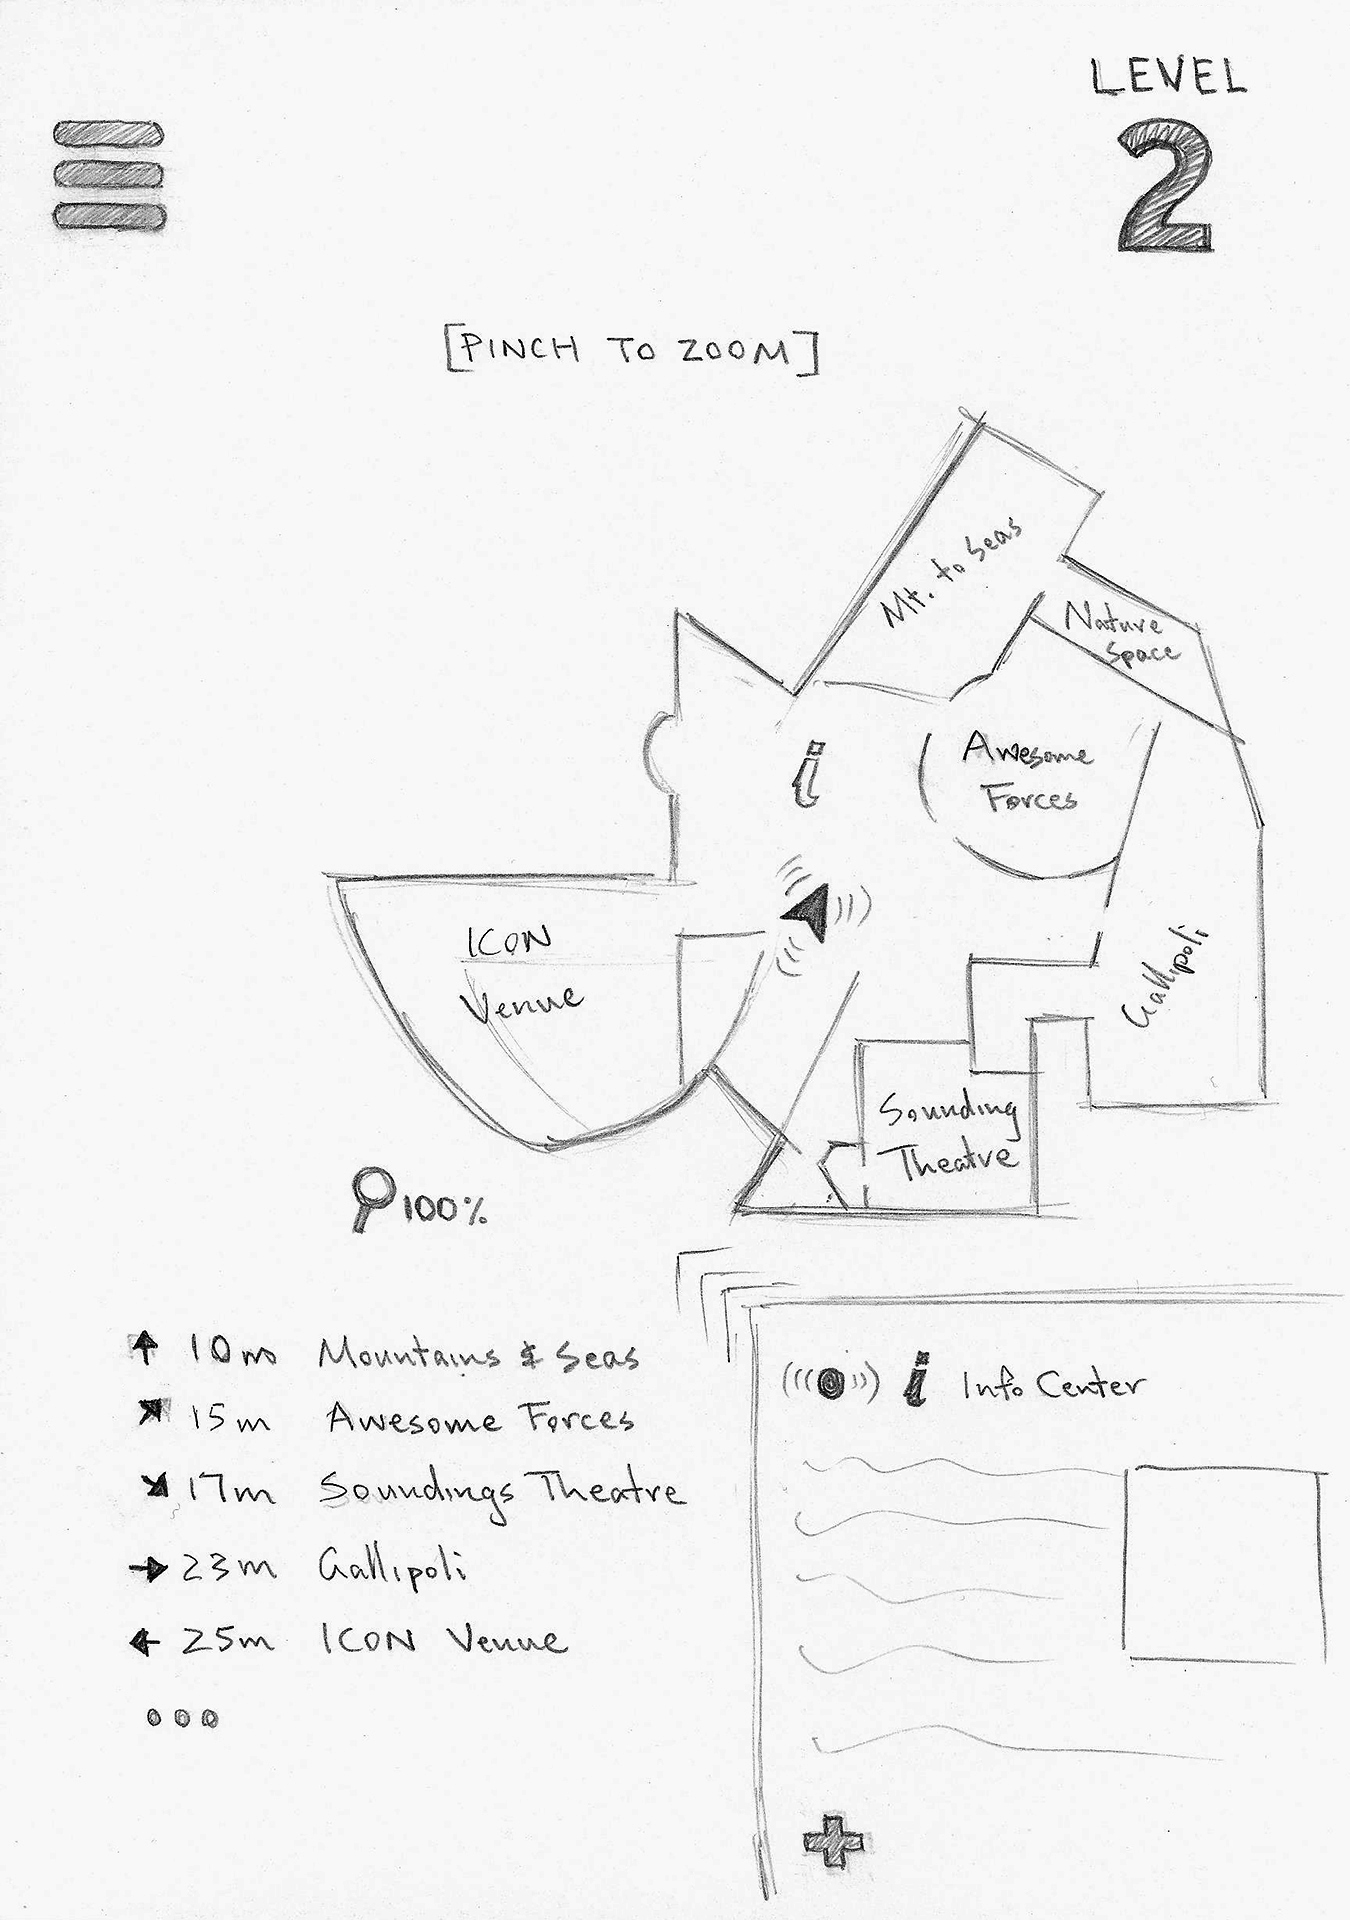 LEVEL
2
[PINCH TO ZOOM]
Mt. to Seas
Nature
Space
i
Awesome
Forces
ICON
Venue
Gallipoli
Sounding
Theatre
100%
↑ 10m Mountains & Seas
↗ 15m Awesome Forces
↘ 17m Soundings Theatre
→ 23m Gallipoli
← 25m ICON Venue
ooo
i Info Center